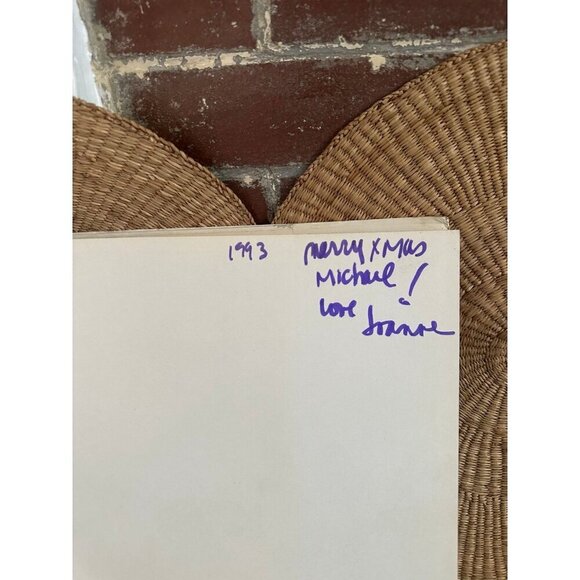 1993 merry xmas
Michael!
Love
Joanne